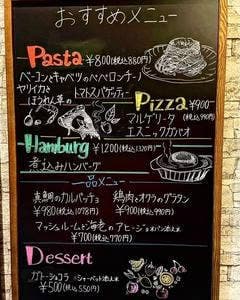 おすすめメニュー
Pasta ¥800(税込880円)
ベーコンとキャベツのペペロンチーノ
ヤリイカとほうれん草のトマトスパゲッティー
Pizza ¥900(税込990円)
マルゲリータ
エスニックガパオ
Hamburg ¥1,200(税込1320円)
煮込みハンバーグ
一品メニュー
真鯛のカルパッチョ
¥980(税込1078円)
鶏肉とオクラのグラタン
¥900(税込990円)
マッシュルームと海老のアヒージョ
¥700(税込770円)
Dessert
ガトーショコラ
¥500(税込550円)